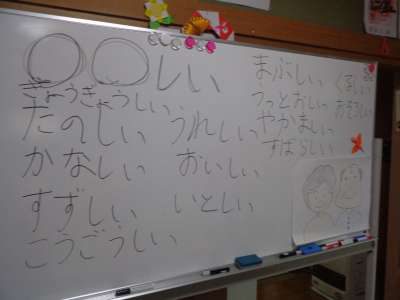 ◯◯しい
ぎょうぎょうしい
たのしい うれしい
かなしい おいしい
すずしい いとしい
こうごうしい
まぶしい くるしい
うっとおしい おそろしい
やかましい
すばらしい